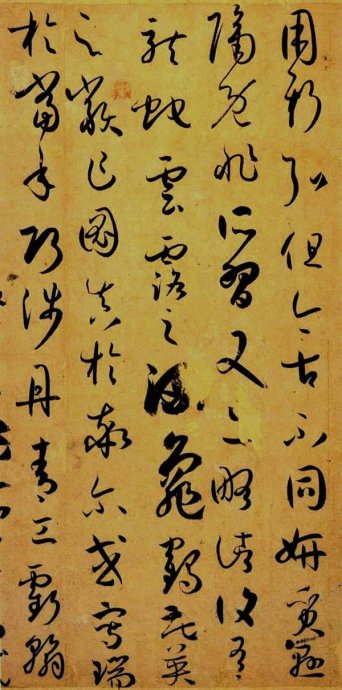 用斯弘但今古不同妍質懸
隔既非所習又亦略諸復有
龍蛇雲露之流龜鶴花英
之類乍圖真於率爾或寫瑞
於當年巧涉丹青工虧翰